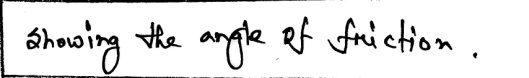 Showing the angle of friction.